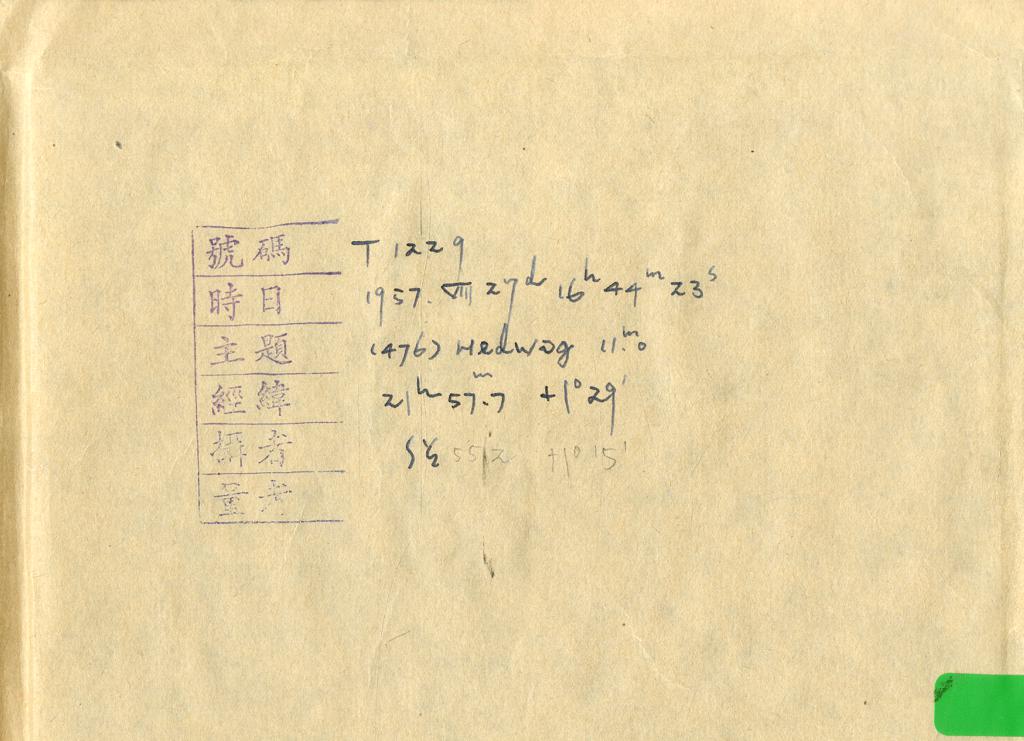 號碼 T 1229
時日 1957. VIII 27d 16h 44m 23s
主題 (476) Hedwig 11.m0
經緯 21h 57.m7 +1° 29'
攝者 +1° 15'
量者